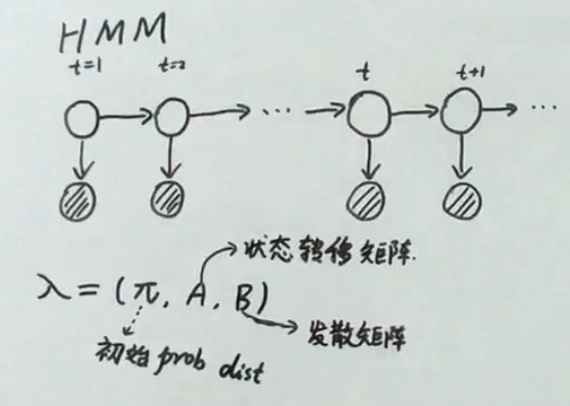 HMM
t=1 t=2 t t+1
... ...
状态转移矩阵.
λ=(π, A, B)
发散矩阵
初始prob dist